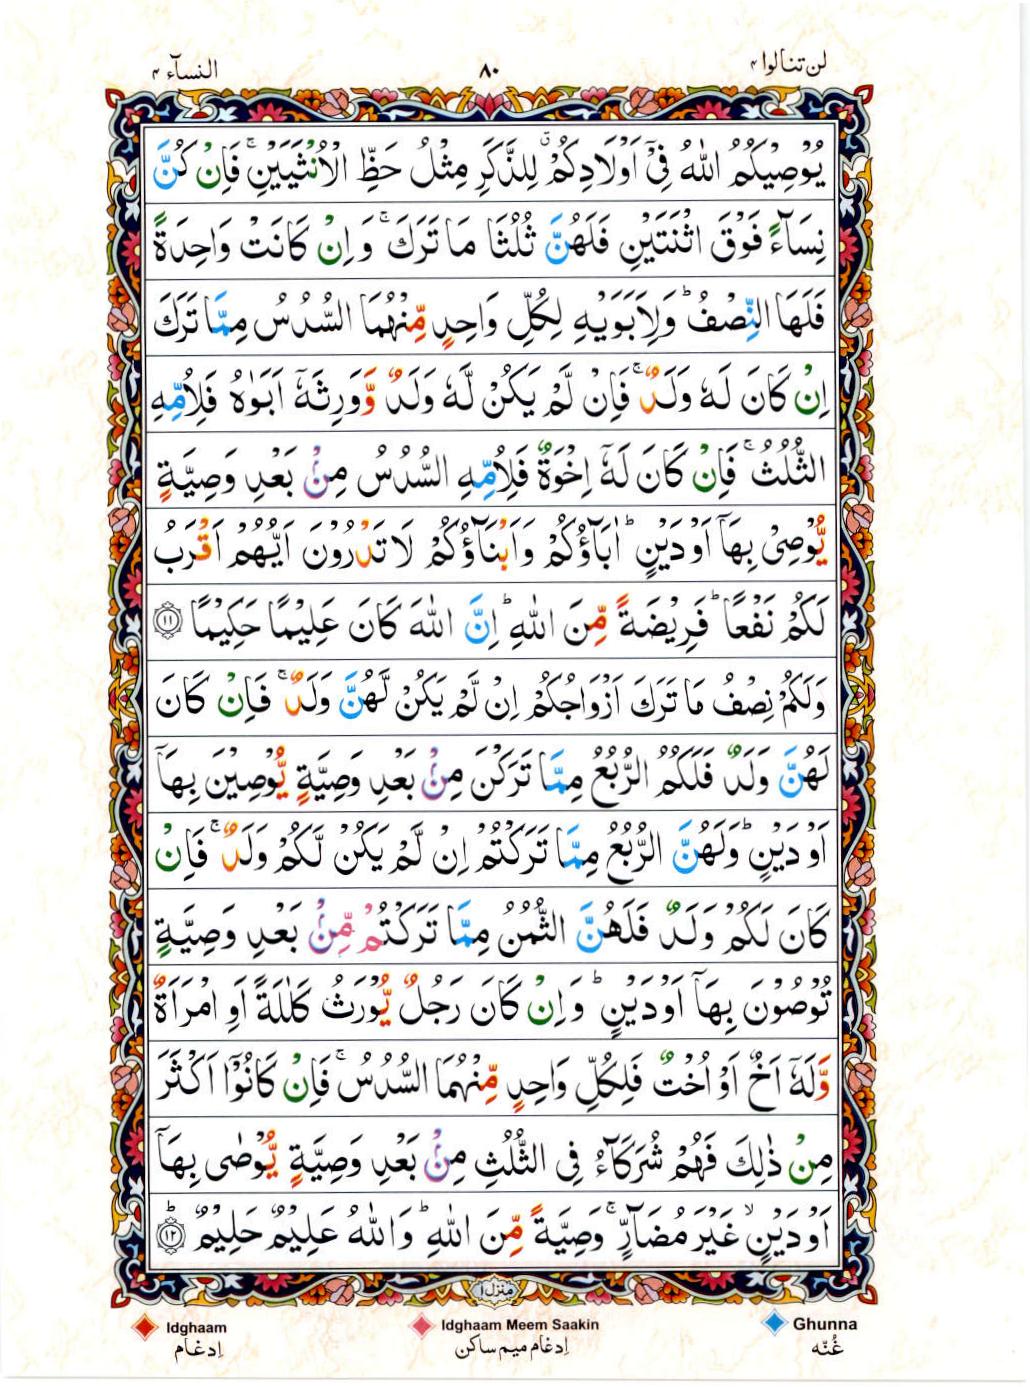 لن تنالوا ۴
۸۰
النسآء ۴
يُوْصِيْكُمُ اللّٰهُ فِیْۤ اَوْلَادِكُمْ ۗ لِلذَّكَرِ مِثْلُ حَظِّ الْاُنْثَيَيْنِ ۚ فَاِنْ كُنَّ
نِسَآءً فَوْقَ اثْنَتَيْنِ فَلَهُنَّ ثُلُثَا مَا تَرَكَ ۚ وَاِنْ كَانَتْ وَاحِدَةً
فَلَهَا النِّصْفُ ؕ وَلِاَبَوَيْهِ لِكُلِّ وَاحِدٍ مِّنْهُمَا السُّدُسُ مِمَّا تَرَكَ
اِنْ كَانَ لَهٗ وَلَدٌ ۚ فَاِنْ لَّمْ يَكُنْ لَّهٗ وَلَدٌ وَّوَرِثَهٗۤ اَبَوٰهُ فَلِاُمِّهِ
الثُّلُثُ ۚ فَاِنْ كَانَ لَهٗۤ اِخْوَةٌ فَلِاُمِّهِ السُّدُسُ مِنْۢ بَعْدِ وَصِيَّةٍ
يُّوْصِیْ بِهَاۤ اَوْ دَيْنٍ ؕ اٰبَآؤُكُمْ وَاَبْنَآؤُكُمْ لَا تَدْرُوْنَ اَيُّهُمْ اَقْرَبُ
لَكُمْ نَفْعًا ؕ فَرِيْضَةً مِّنَ اللّٰهِ ؕ اِنَّ اللّٰهَ كَانَ عَلِيْمًا حَكِيْمًا ۝۱۱
وَلَكُمْ نِصْفُ مَا تَرَكَ اَزْوَاجُكُمْ اِنْ لَّمْ يَكُنْ لَّهُنَّ وَلَدٌ ۚ فَاِنْ كَانَ
لَهُنَّ وَلَدٌ فَلَكُمُ الرُّبُعُ مِمَّا تَرَكْنَ مِنْۢ بَعْدِ وَصِيَّةٍ يُّوْصِيْنَ بِهَاۤ
اَوْ دَيْنٍ ؕ وَلَهُنَّ الرُّبُعُ مِمَّا تَرَكْتُمْ اِنْ لَّمْ يَكُنْ لَّكُمْ وَلَدٌ ۚ فَاِنْ
كَانَ لَكُمْ وَلَدٌ فَلَهُنَّ الثُّمُنُ مِمَّا تَرَكْتُمْ مِّنْۢ بَعْدِ وَصِيَّةٍ
تُوْصُوْنَ بِهَاۤ اَوْ دَيْنٍ ؕ وَاِنْ كَانَ رَجُلٌ يُّوْرَثُ كَلٰلَةً اَوِ امْرَاَةٌ
وَّلَهٗۤ اَخٌ اَوْ اُخْتٌ فَلِكُلِّ وَاحِدٍ مِّنْهُمَا السُّدُسُ ۚ فَاِنْ كَانُوْۤا اَكْثَرَ
مِنْ ذٰلِكَ فَهُمْ شُرَكَآءُ فِی الثُّلُثِ مِنْۢ بَعْدِ وَصِيَّةٍ يُّوْصٰی بِهَاۤ
اَوْ دَيْنٍ ۙ غَيْرَ مُضَآرٍّ ۚ وَصِيَّةً مِّنَ اللّٰهِ ؕ وَاللّٰهُ عَلِيْمٌ حَلِيْمٌ ؕ ۝۱۲
منزل ۱
Idghaam Idghaam Meem Saakin Ghunna
اِدغام اِدغام میم ساکن غُنّه